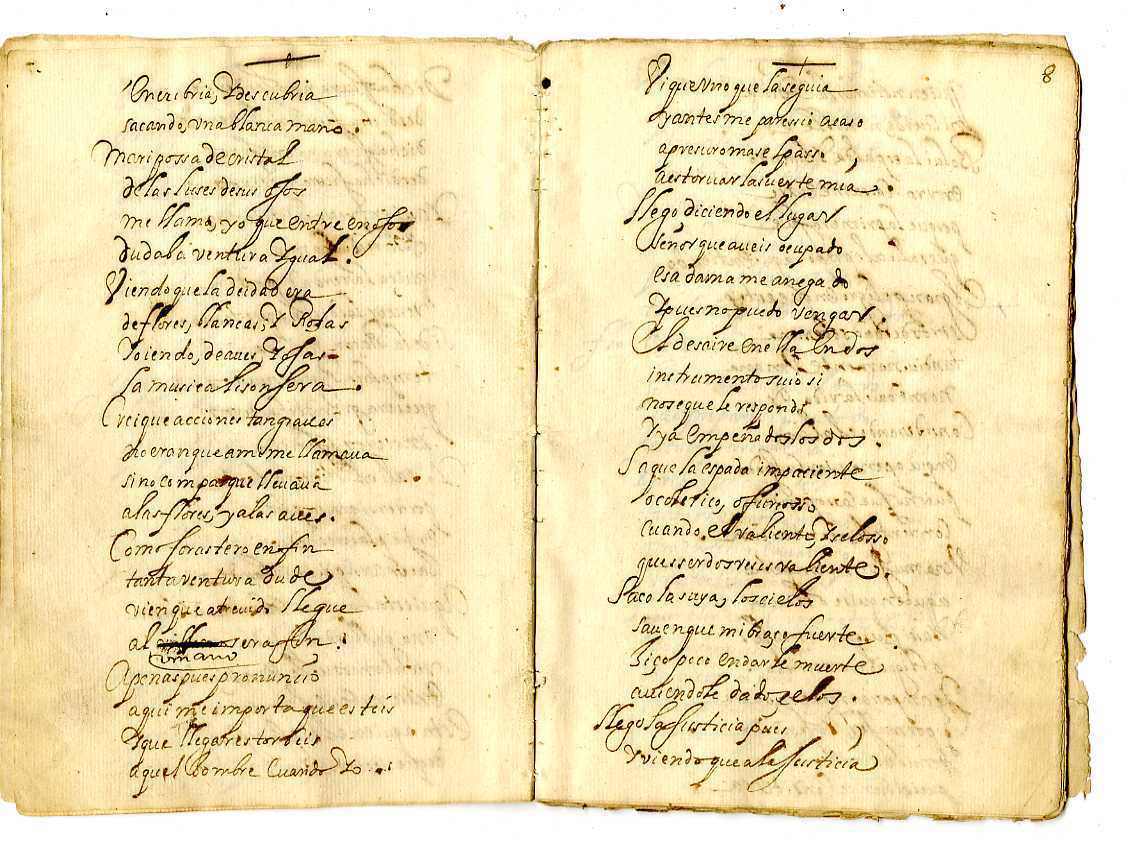 Encubria, Y descubria
sacando, una blanca mano.
Maripossa de cristal
de las luses de sus ojos
me llama, yo que entre enojos
dudaba ventura Ygual.
Viendo que la deidad era
de flores, llancas, Y Rosas
Yoiendo, de aues, Y osas
la musica lisonsera.
Crei que acciones tan graues
No eran que a mi me llamaua
sino compas que lleuaua
a las flores, y a las aues.
Como forastero en fin
tanta ventura dude
vien que atreuido llegue
al serafin.
vmano
Apenas pues pronunçio
aqui me importa que esteis
Y que llegar estorbeis
aquel hombre Cuando Yo
8
Vi que vno que la seguia
y antes me paressio acaso
apresuro mas el passo
a estoruar la suerte mia.
llego diciendo el lugar
señor que aueis ocupado
esa dama me a negado
Y pues no puedo vengar
El desaire en ella En dos
instrumento suio si
no se que le respondi
Y ya Empeñados los dos.
Saque la espada impaciente
o colerico, o furiosso
cuando el valiente, Y selosso
que ser dos veses valiente.
Saco la suya, los cielos
sauen que mi braço fuerte
hiço poco en darle muerte
auiendole dado selos.
llego la Justicia pues
Y viendo que a la Justicia